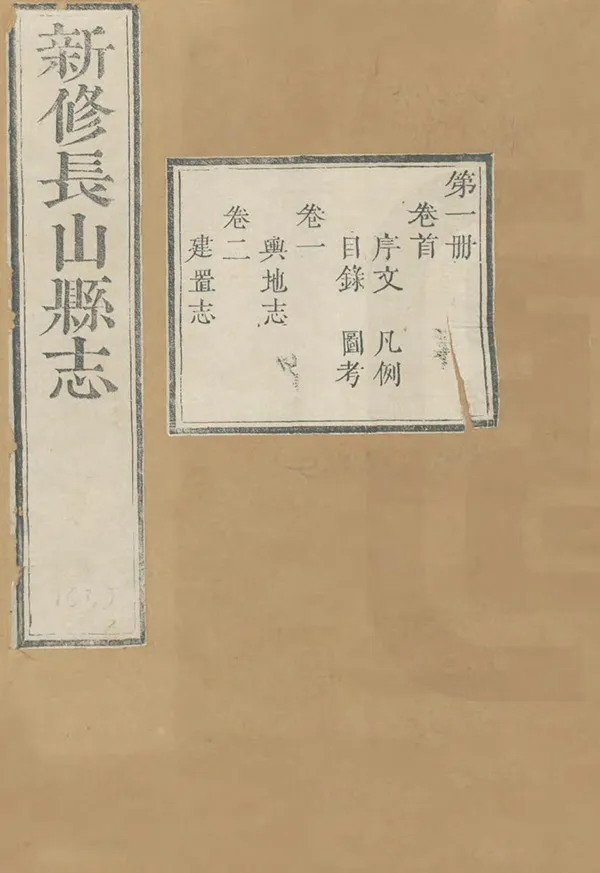 新修長山縣志
第一册
卷首
序文 凡例
目錄 圖考
卷一
輿地志
卷二
建置志